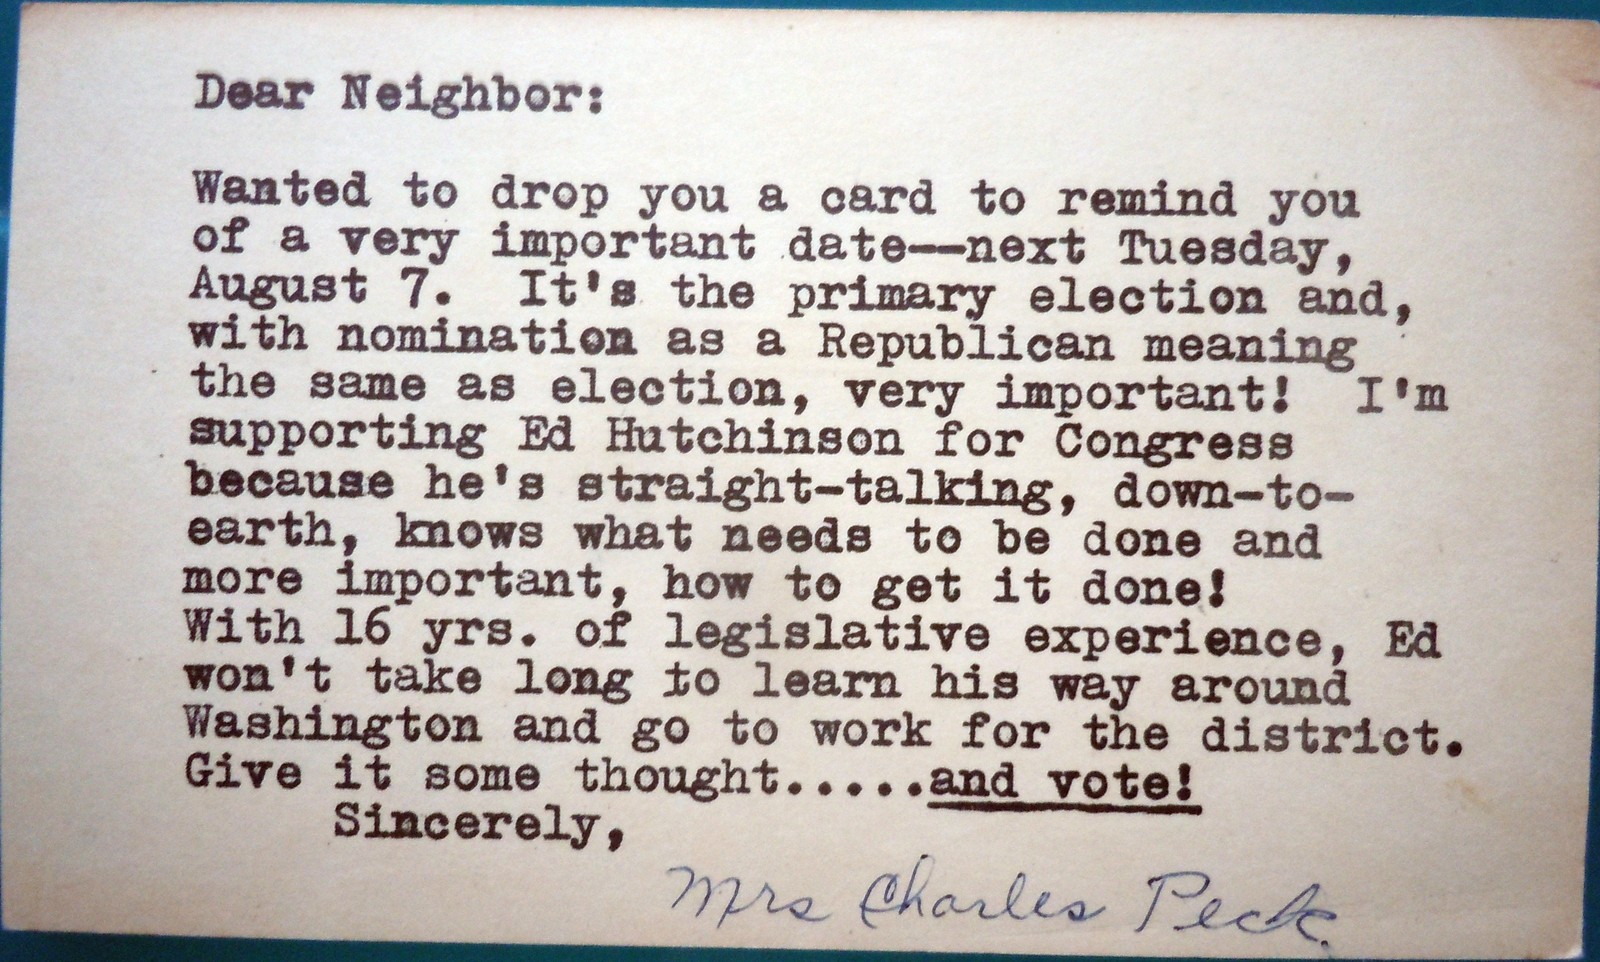 Dear Neighbor:
Wanted to drop you a card to remind you
of a very important date--next Tuesday,
August 7.  It's the primary election and,
with nomination as a Republican meaning
the same as election, very important!  I'm
supporting Ed Hutchinson for Congress
because he's straight-talking, down-to-
earth, knows what needs to be done and
more important, how to get it done!
With 16 yrs. of legislative experience, Ed
won't take long to learn his way around
Washington and go to work for the district.
Give it some thought.....and vote!
Sincerely,
Mrs Charles Peck.